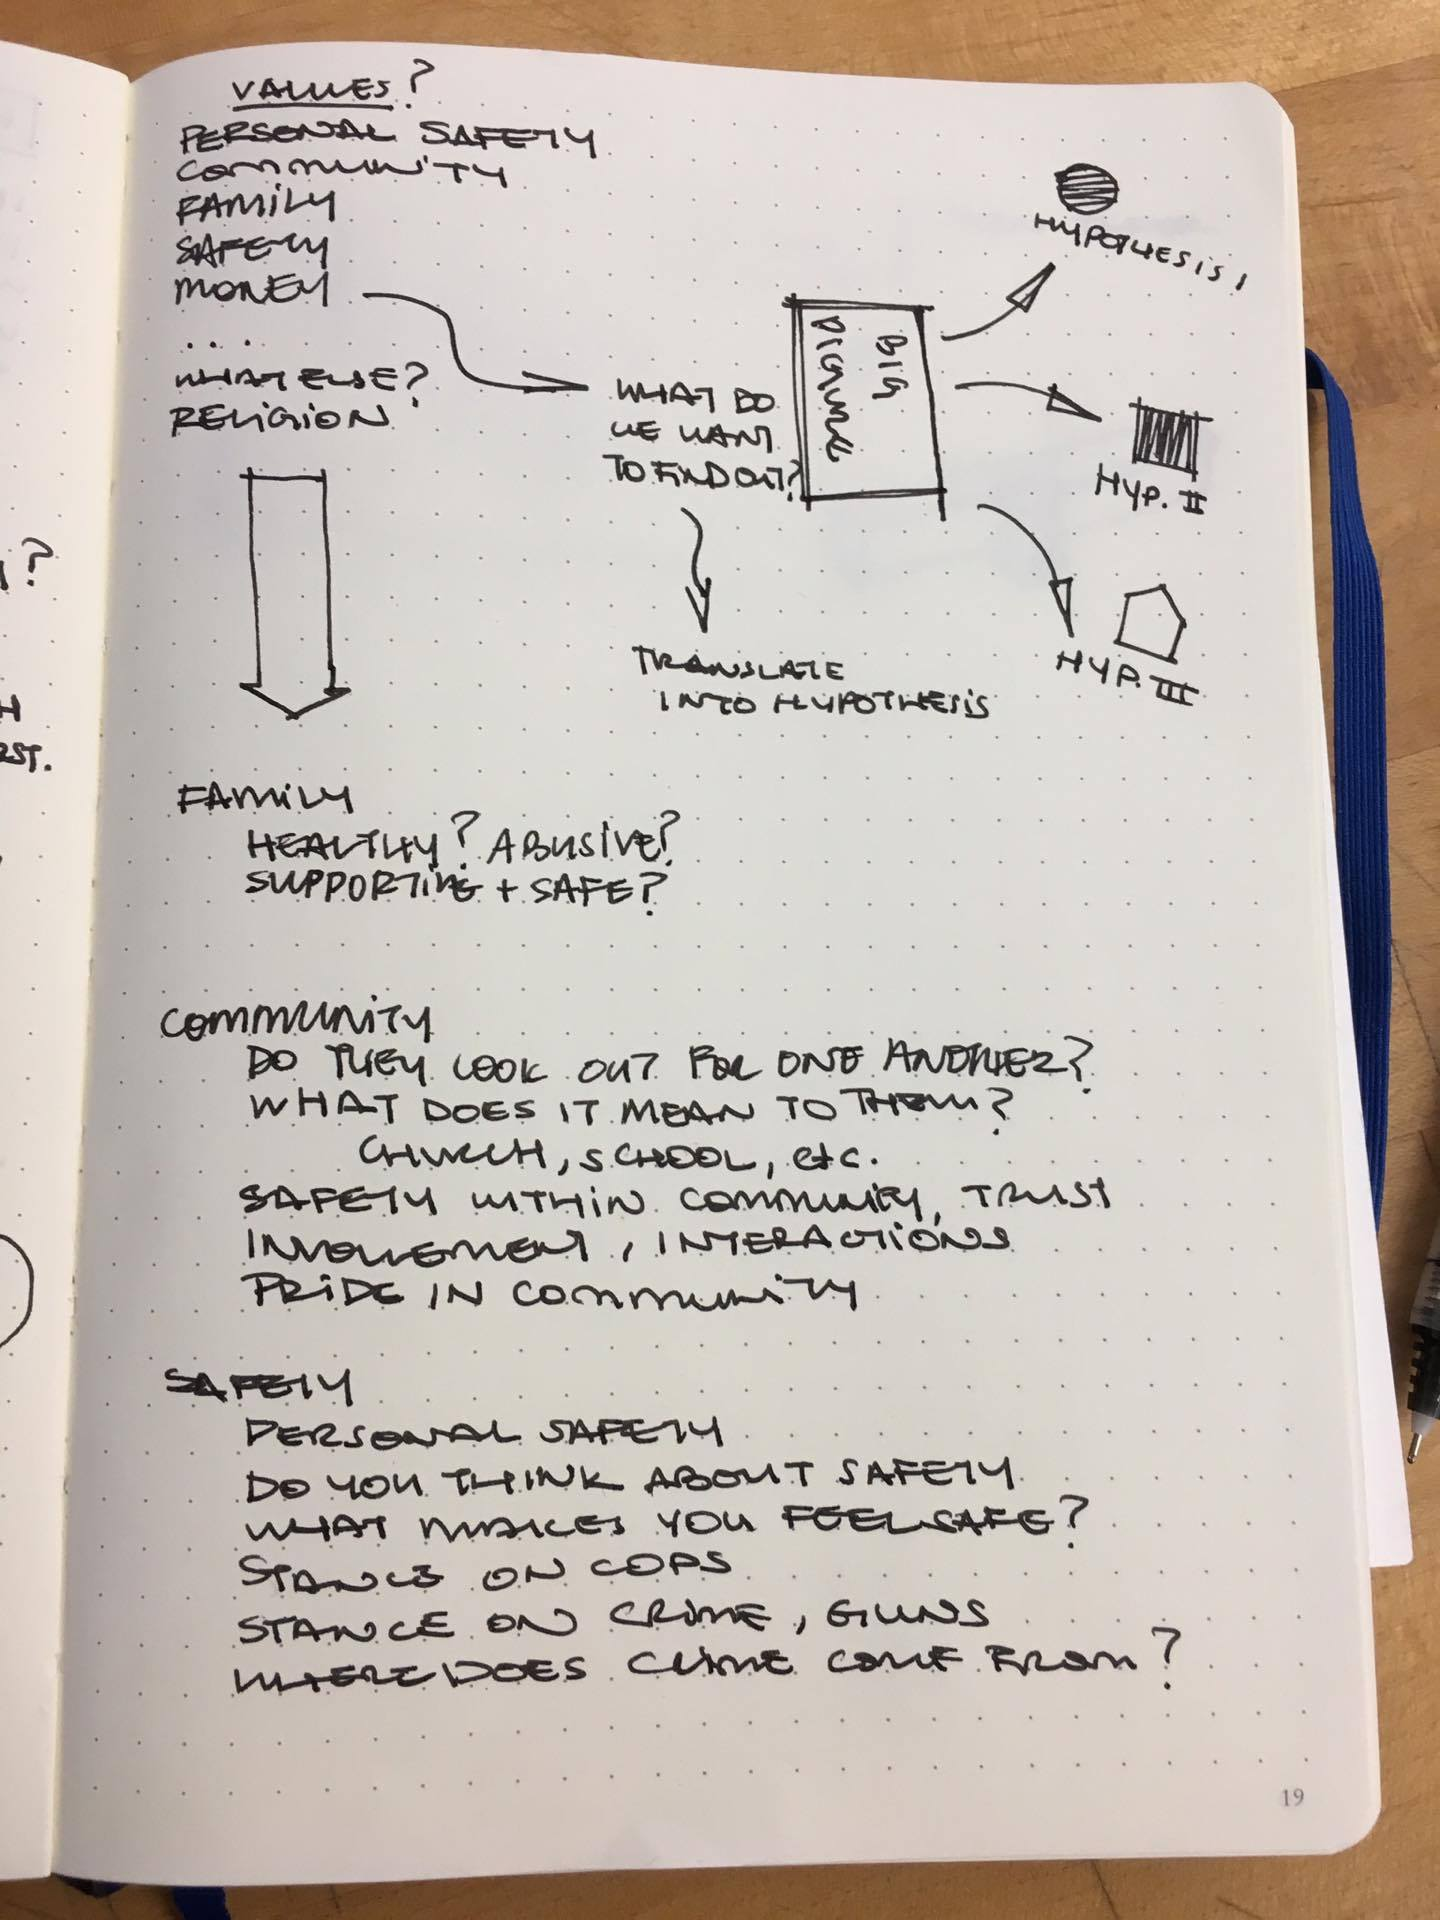 VALUES?
PERSONAL SAFETY
COMMUNITY
FAMILY
SAFETY
MONEY
...
WHAT ELSE?
RELIGION
WHAT DO
WE WANT
TO FIND OUT?
TRANSLATE
INTO HYPOTHESIS
BIG
PICTURE
HYPOTHESIS I
HYP. II
HYP. III
FAMILY
HEALTHY? ABUSIVE?
SUPPORTING + SAFE?
COMMUNITY
DO THEY LOOK OUT FOR ONE ANOTHER?
WHAT DOES IT MEAN TO THEM?
CHURCH, SCHOOL, etc.
SAFETY WITHIN COMMUNITY, TRUST
INVOLVEMENT, INTERACTIONS
PRIDE IN COMMUNITY
SAFETY
PERSONAL SAFETY
DO YOU THINK ABOUT SAFETY
WHAT MAKES YOU FEEL SAFE?
STANCE ON COPS
STANCE ON CRIME, GUNS
WHERE DOES CRIME COME FROM?
19